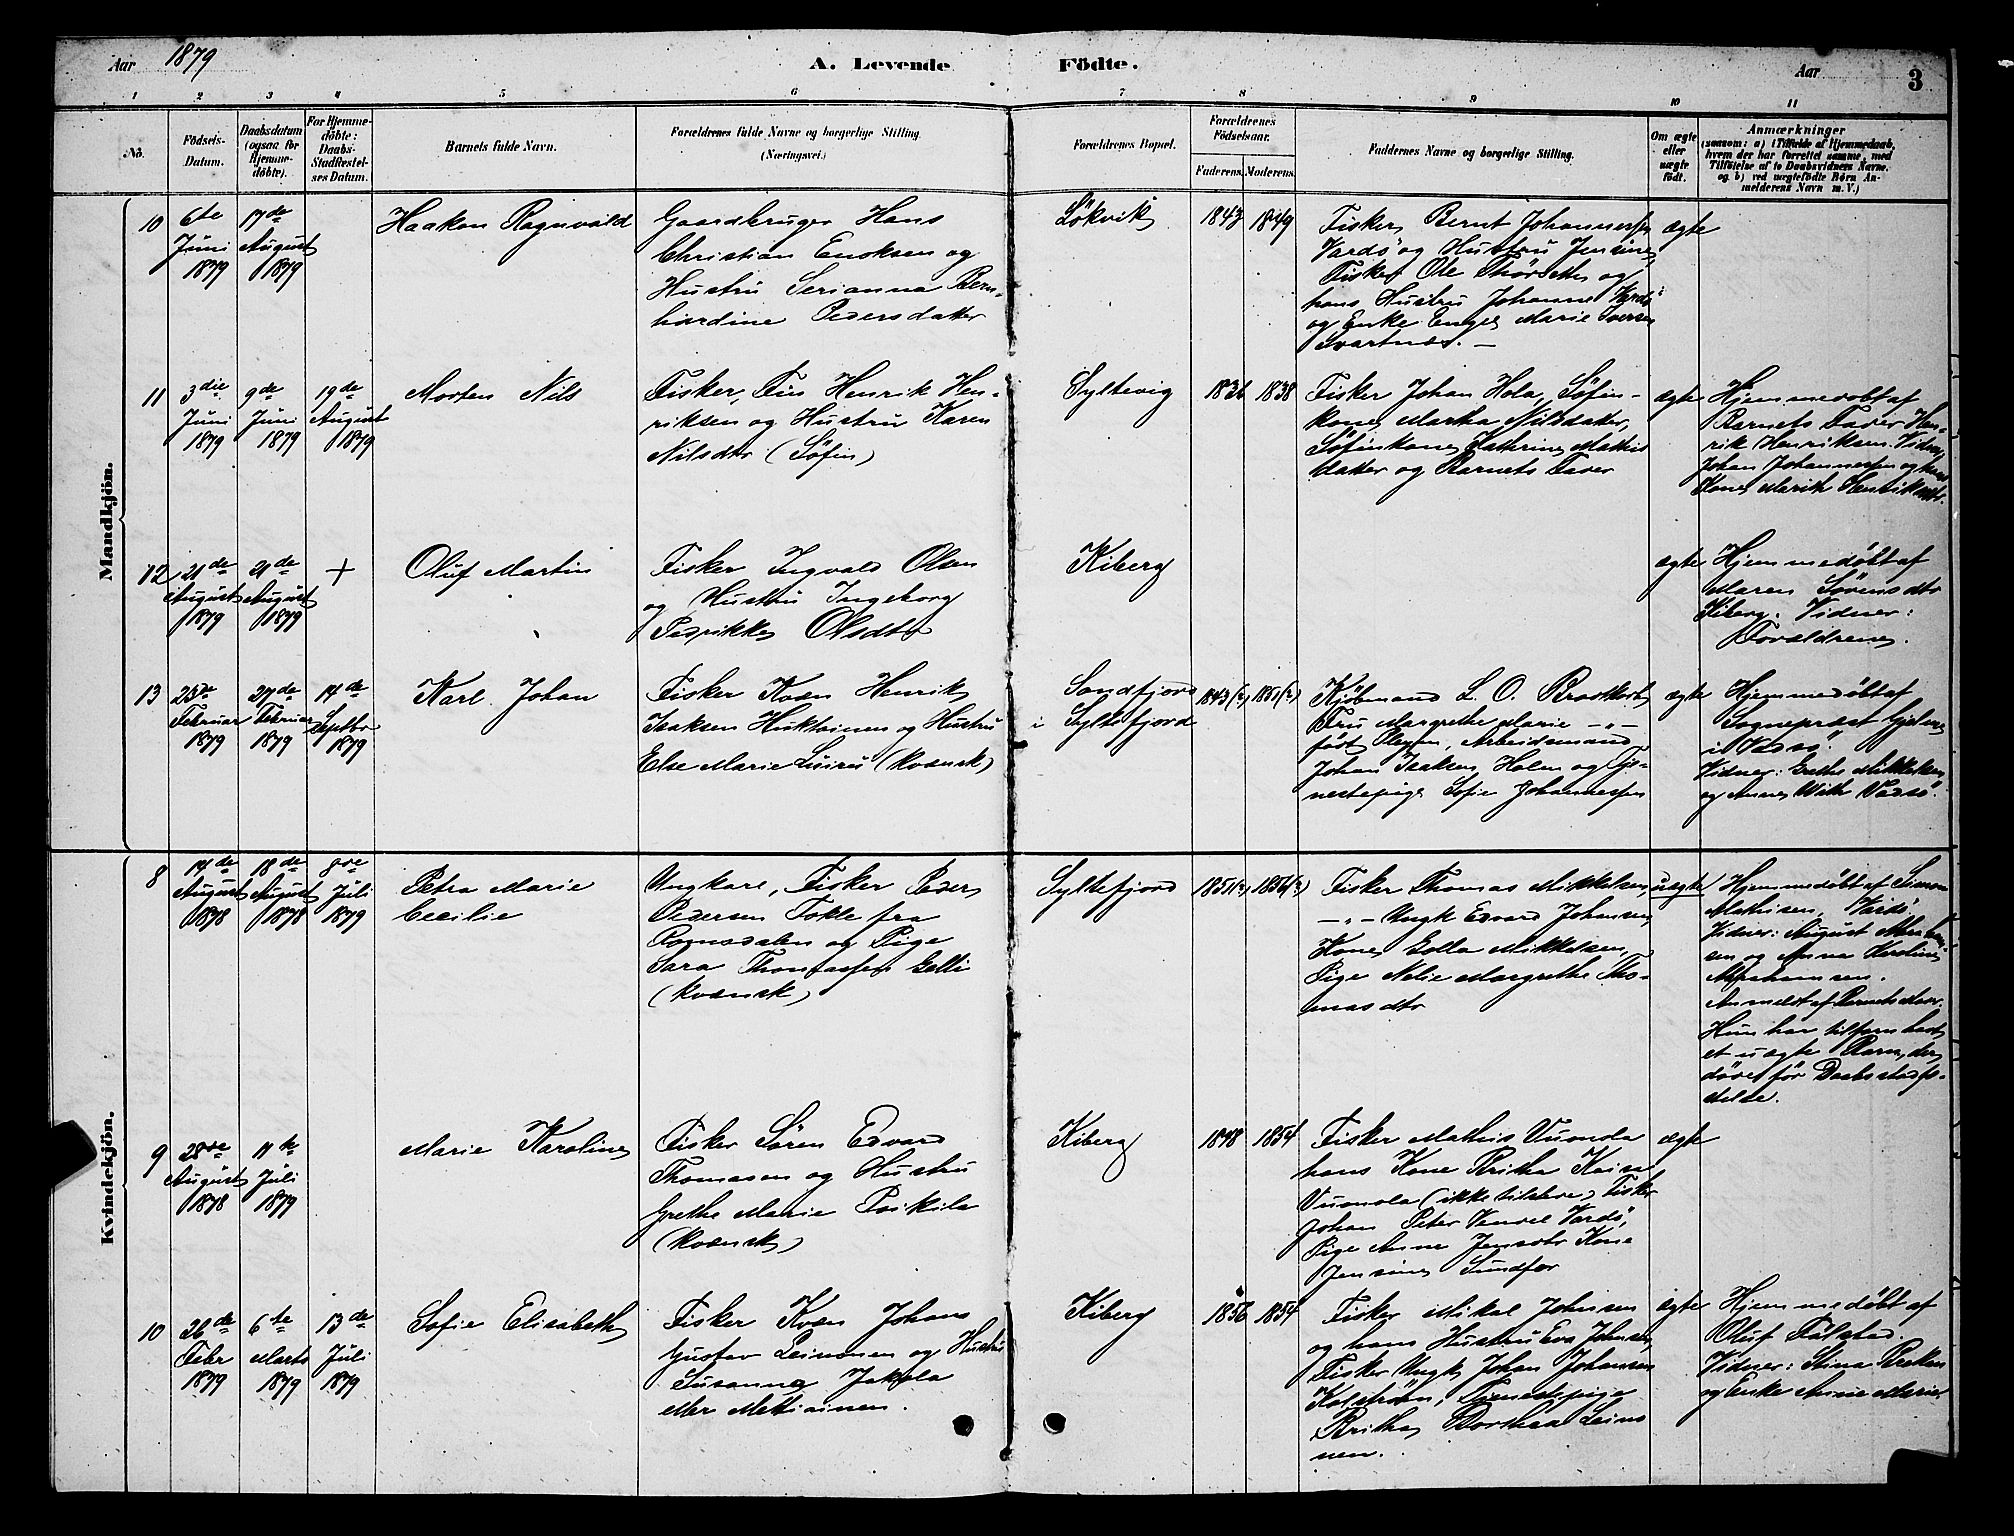 Aar 1879
A. Levende Födte.
Aar
3
1 2 3 4 5 6 7 8 9 10 11
No.
Födsels-
Datum.
Daabsdatum
(ogsaa for
Hjemme-
döbte).
For Hjemme-
döbte:
Daabs-
Stadfæstel-
ses Datum.
Barnets fulde Navn.
Forældrenes fulde Navne og borgerlige Stilling.
(Næringsvei.)
Forældrenes Bopæl.
Forældrenes
Födselsaar.
Faderens. Moderens.
Faddernes Navne og borgerlige Stilling.
Om ægte
eller
uægte
födt.
Anmærkninger
(saasom: a) i Tilfælde af Hjemmedaab,
hvem der har forrettet samme, med
Tilföielse af to Daabsvidners Navne.
og b) ved uægtefödte Börn An-
melderens Navn m. V.)
Mandkjön.
10
6te
Juni
1879
17de
August
1879
Haakon Ragnvald
Gaardbruger Hans
Christian Enoksen og
Hustru Serianna Bern-
hardine Pedersdatter
Lökvik
1843
1849
Fisker Bernt Johannessen
Vardö og Hustru Jensine,
Fisker Ole og
hans Hustru Johanne Vardö
og Enke Marie Iversen
Svartnæs. –
ægte
11
3die
Juni
1879
9de
Juni
1879
19de
August
1879
Morten Nils
Fisker, Fin Henrik Hen-
riksen og Hustru Karen
Nilsdtr (Söfin)
Syltevig
1836
1838
Fisker Johan Hola, Söfin-
kone Martha Nilsdatter,
Söfinkone Kathrine Mathis
datter og Barnets Fader
ægte
Hjemmedöbt af
Barnets Fader Hen-
rik Henriksen. Vidner,
Johan Johannessen og hans
Kone Marith Henriksdtr.
12
21de
August
1879
21de
August
1879
+
Oluf Martin
Fisker Ingvald Olsen
og Hustru Ingeborg
Pedrikke Olsdtr
Kiberg
ægte
Hjemmedöbt af
Maren Sörensdtr
Kiberg. Vidner:
Forældrene.
13
23de
Februar
1879
27de
Februar
1879
14de
Septbr
1879
Karl Johan
Fisker Kvæn Henrik
Isaksen Huktainen og Hustru
Else Marie Luiru (kvænsk)
Sandfjord
i Syltefjord
1843(?)
1851(?)
Kjöbmand L. O. Brodtkorb
Fru Margrethe Marie –"–
födt Arbeidsmand
Johan Isaksen Holm og Tje-
nestepige Sofie Johannessen
ægte
Hjemmedöbt af
Sogneprest
i Vadsö.
Vidner: Grethe Mikkelsen
og Anne With Vadsö.
Kvindekjön.
8
14de
August
1878
18de
August
1878
8de
Juli
1879
Petra Marie
Cecilie
Ungkarl, Fisker Peder
Pedersen Tokle fra
Romsdalen og Pige
Sara Thomassen Gelli
(kvænsk)
Syltefjord
1851(?)
1856(?)
Fisker Thomas Mikkelsen,
–"– Ungk Edvard Johansen,
Kone Golla Mikkelsen,
Pige Nelie Margrethe Tho-
masdtr
uægte
Hjemmedöbt af Simon
Mathisen, Vardö.
Vidner: August Abraham-
sen og Anna Karoline
Abrahamsen.
Anmeldt af Barnets Moder.
Hun har tilforn havt
et uægte Barn, der
döde för Daabsstadfæ-
stelse.
9
28de
August
1878
11te
Juli
1879
Marie Karoline
Fisker Sören Edvard
Thomasen og Hustru
Grethe Marie Poikila
(kvænsk)
Kiberg
1848
1854
Fisker Mathis Vuonola
hans Kone Britha Kaisa
Vuonola (ikke tilstede) Fisker
Johan Peter Vardö,
Pige Anne Jensdtr Kone
Jensine Sundfær
ægte
10
26de
Febr
1879
6te
Marts
1879
13de
Juli
1879
Sofie Elisabeth
Fisker Kvæn Johans
Gustav Leinonen og Hustru
Susanna Jakola
eller Mattiainen.
Kiberg
1856
1854
Fisker Mikal Johnsen
og hans Hustru Eva Johnsen,
Fisker Ungk Johan Johansen
Kolström, Tjenestepige
Britha Dorthea Leino
nen.
ægte
Hjemmedöbt af
Oluf Falstad.
Vidner: Stina Brekan
og Enke Anne Marie